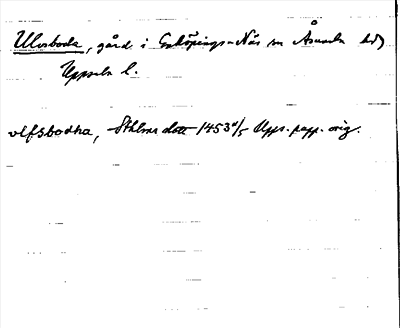 Ulvsboda, gård i Enköpings-Näs sn Åsunda hd,
Uppsala l.
vlfsbodha, Sthlms dott 1453 4/5 Upps. papp. orig.